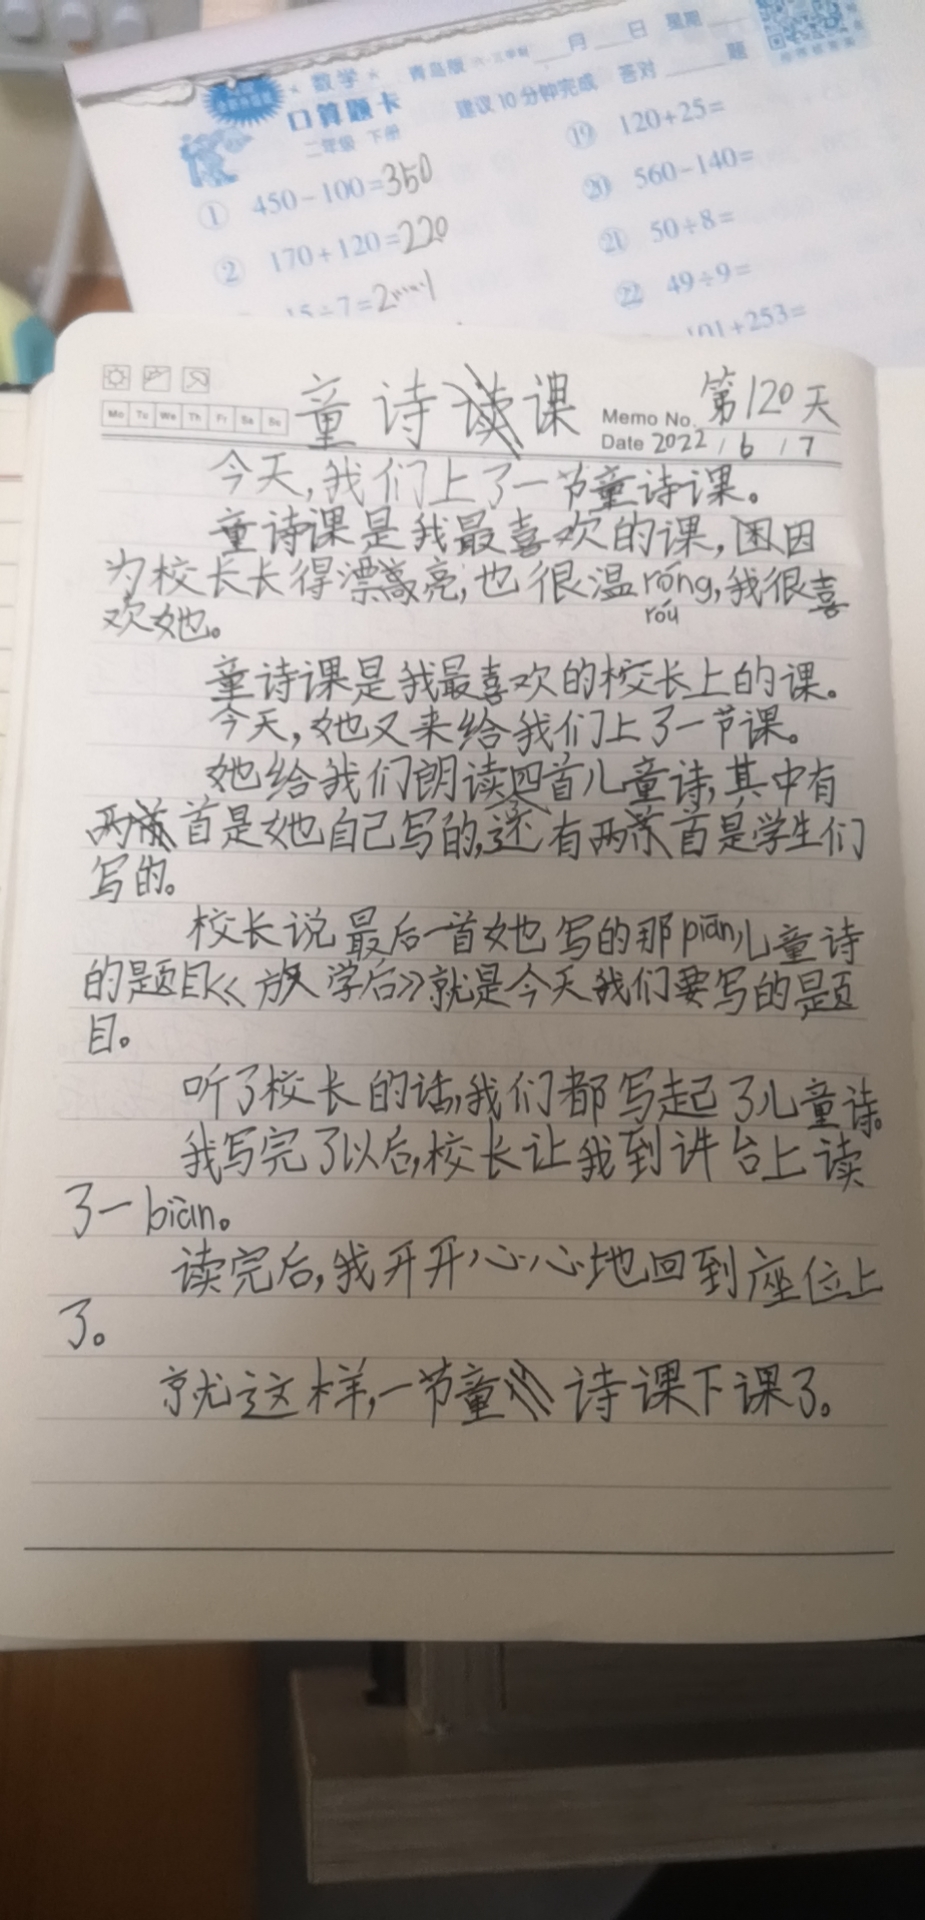 数学 青岛版 六·三学制 月 日 星期
口算题卡 建议10分钟完成 答对 题
二年级 下册
① 450-100=350
② 170+120=220
15÷7=2……1
⑲ 120+25=
⑳ 560-140=
㉑ 50÷8=
㉒ 49÷9=
101+253=
Mo Tu We Th Fr Sa Su
童诗课
Memo No. 第120天
Date 2022/6/7
今天,我们上了一节童诗课。
童诗课是我最喜欢的课,因
为校长长得漂亮,也很温róng,我很喜
róu
欢她。
童诗课是我最喜欢的校长上的课。
今天,她又来给我们上了一节课。
她给我们朗读四首儿童诗,其中有
了
两首是她自己写的,还有两首是学生们
写的。
校长说最后一首她写的那piān儿童诗
的题目《放学后》就是今天我们要写的题
目。
听了校长的话,我们都写起了儿童诗。
我写完了以后,校长让我到讲台上读
了一biàn。
读完后,我开开心心地回到座位上
了。
就这样,一节童诗课下课了。